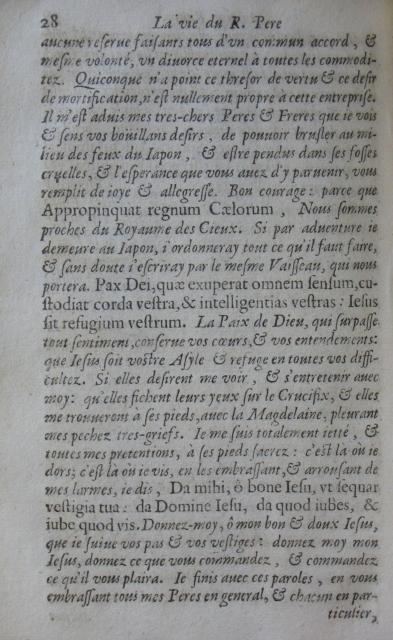 28 La vie du R. Pere
aucune reserue faisants tous d'vn commun accord, &
mesme volonté, vn diuorce eternel à toutes les commodi-
tez. Quiconque n'a point ce thresor de vertu & ce desir
de mortification, n'est nullement propre à cette entreprise.
Il m'est aduis mes tres-chers Peres & Freres que ie vois
& sens vos bouillans desirs, de pouuoir brusler au mi-
lieu des feux du Iapon, & estre pendus dans ses fosses
cruelles, & l'esperance que vous auez d'y paruenir, vous
remplit de ioye & allegresse. Bon courage: parce que
Appropinquat regnum Cælorum, Nous sommes
proches du Royaume des Cieux. Si par aduenture ie
demeure au Iapon, i'ordonneray tout ce qu'il faut faire,
& sans doute i'escriray par le mesme Vaisseau, qui nous
portera. Pax Dei, quæ exuperat omnem sensum, cu-
stodiat corda vestra, & intelligentias vestras: Iesus
sit refugium vestrum. La Paix de Dieu, qui surpasse
tout sentiment, conserue vos cœurs, & vos entendements:
que Iesus soit vostre Asyle & refuge en toutes vos diffi-
cultez. Si elles desirent me voir, & s'entretenir auec
moy: qu'elles fichent leurs yeux sur le Crucifix, & elles
me trouueront à ses pieds, auec la Magdelaine, pleurant
mes pechez tres-griefs. Ie me suis totalement ietté, &
toutes mes pretentions, à ses pieds sacrez: c'est là où ie
dors; c'est là où ie vis, en les embrassant, & arrousant de
mes larmes, ie dis, Da mihi, ô bone Iesu, vt sequar
vestigia tua: da Domine Iesu, da quod iubes, &
iube quod vis. Donnez-moy, ô mon bon & doux Iesus,
que ie suiue vos pas & vos vestiges: donnez moy mon
Iesus, donnez ce que vous commandez, & commandez
ce qu'il vous plaira. Ie finis auec ces paroles, en vous
embrassant tous mes Peres en general, & chacun en par-
ticulier,